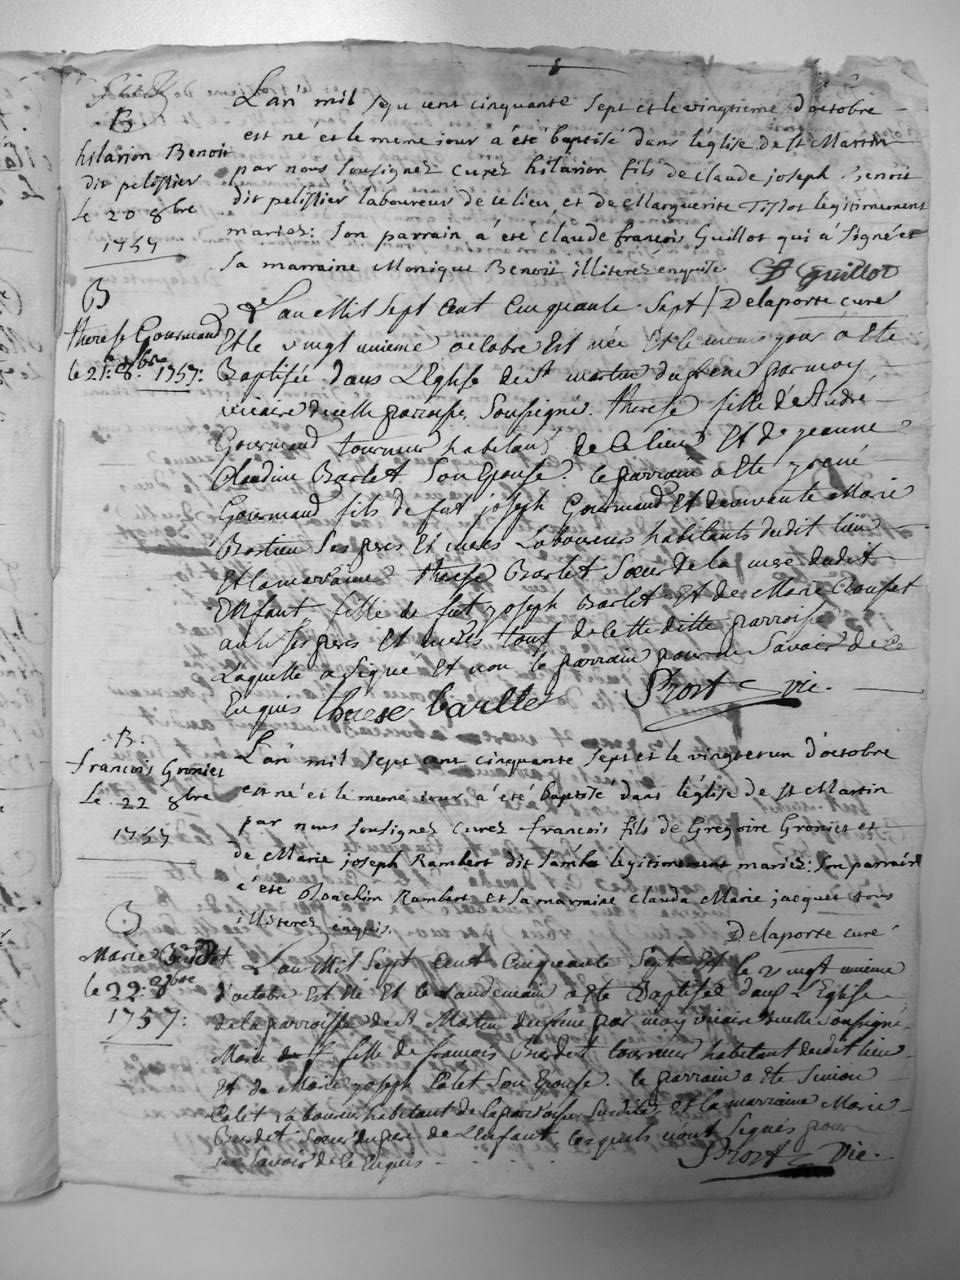 B
hilarion Benoit
dit pelissier
le 20 8bre
1757
L'an mil sept cent cinquante sept et le vingtieme d'octobre
est né et le meme jour a été baptisé dans l'église de st Martin
par nous soussignez curez hilarion fils de claude joseph Benoit
dit pelissier laboureur de ce lieu et de Marguerite Tissot legitimement
mariez: son parrain a été claude françois Guillot qui a signé et
sa marraine Monique Benoit illiterez enquise guillot
Delaporte curé
B
therese Gourmand
le 21: 8bre 1757:
L'an Mil sept Cent Cinquante Sept
Et le vingt unieme octobre Est née Et le meme jour a eté
Baptisée dans L'Eglise de st martin du frene par moy
vicaire d'icelle parroisse, soussigné. therese fille d'Andre
Gourmand tourneur habitant de ce lieu Et de jeanne
Claudine Barlet son Epouse. le parrain a eté
Gourmand fils de fut joseph Gourmand Et de vivente Marie
Bastien ses peres Et meres Laboureurs habitants dudit lieu
Et la marraine therese Barlet Sœur de la mere dudit
Enfant fille de fut joseph Barlet Et de Marie
aussi ses peres Et meres tous de cette ditte parroisse
Laquelle a signé Et non le parrain pour ne savoir de ce
Enquis therese barllet vic.
B.
francois Gronier
Le 22 8bre
1757
L'an mil sept cent cinquante sept et le vingt et un d'octobre
est né et le meme jour a été baptisé dans l'église de st Martin
par nous soussignez curez francois fils de Gregoire Gronier et
de Marie joseph Rambert dit Samba legitimement mariez: son parrain
a été Joachim Rambert et sa marraine clauda Marie jacquet tous
illiterez enquis.
Delaporte curé
B
Marie Burdet
le 22: 8bre
1757:
L'an Mil Sept Cent Cinquante Sept Et le vingt unieme
d'octobre Est née Et le Landemain a eté Baptisée dans L'Eglise
de la parroisse de st Martin du frene par moy vicaire d'icelle soussigné
Marie fille de francois Burdet tourneur habitant dudit lieu
Et de Marie joseph Calet son Epouse. le parrain a eté Simon
Calet Laboureur habitant de la parroisse susditte, et la marraine Marie
Burdet Sœur du pere de L'enfant lesquels n'ont signés pour
ne savoir de ce Enquis vic.